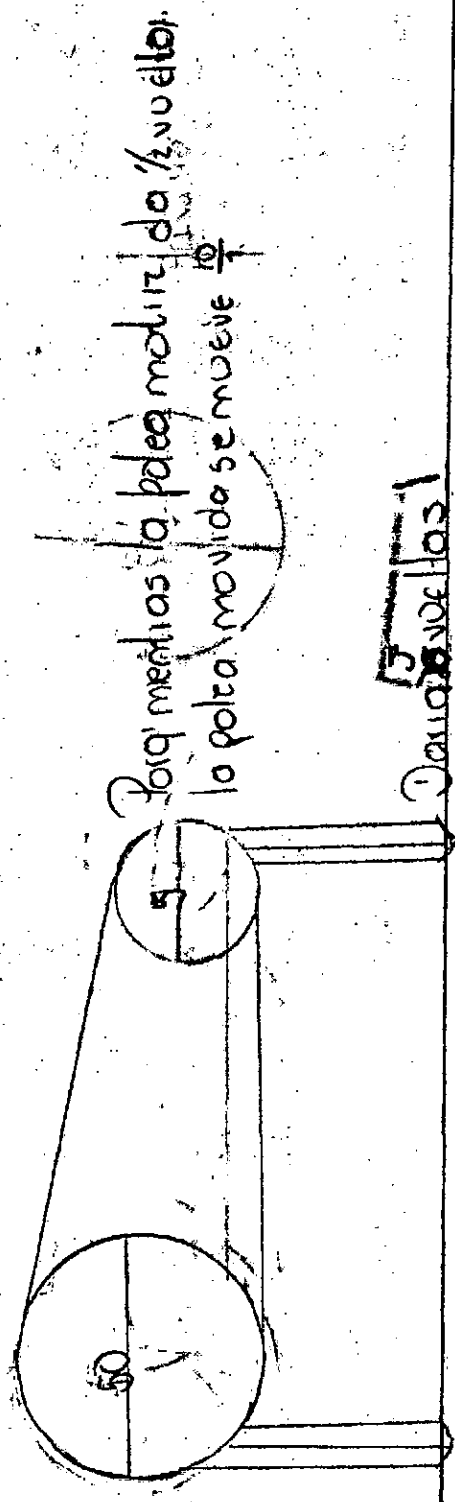 Porq' mentias la polea motriz da 1/2 vuelta,
la polea movida se mueve 10/1
50
5
5
Daria vueltas